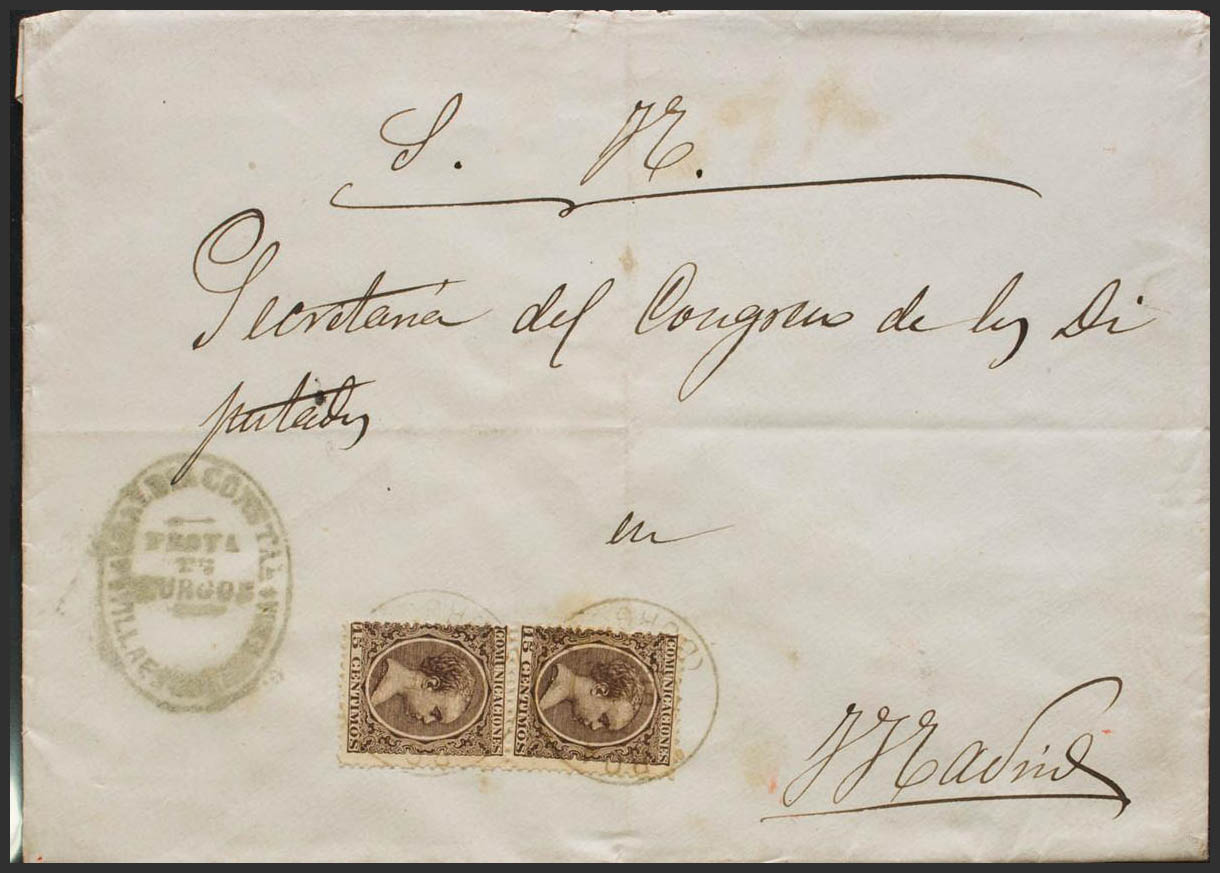 S. N.
Secretaría del Congreso de los Di
putados
en
Madrid
CONSTAL
PROVA
DE
BURGOS
COMUNICACIONES
15 CENTIMOS
COMUNICACIONES
15 CENTIMOS